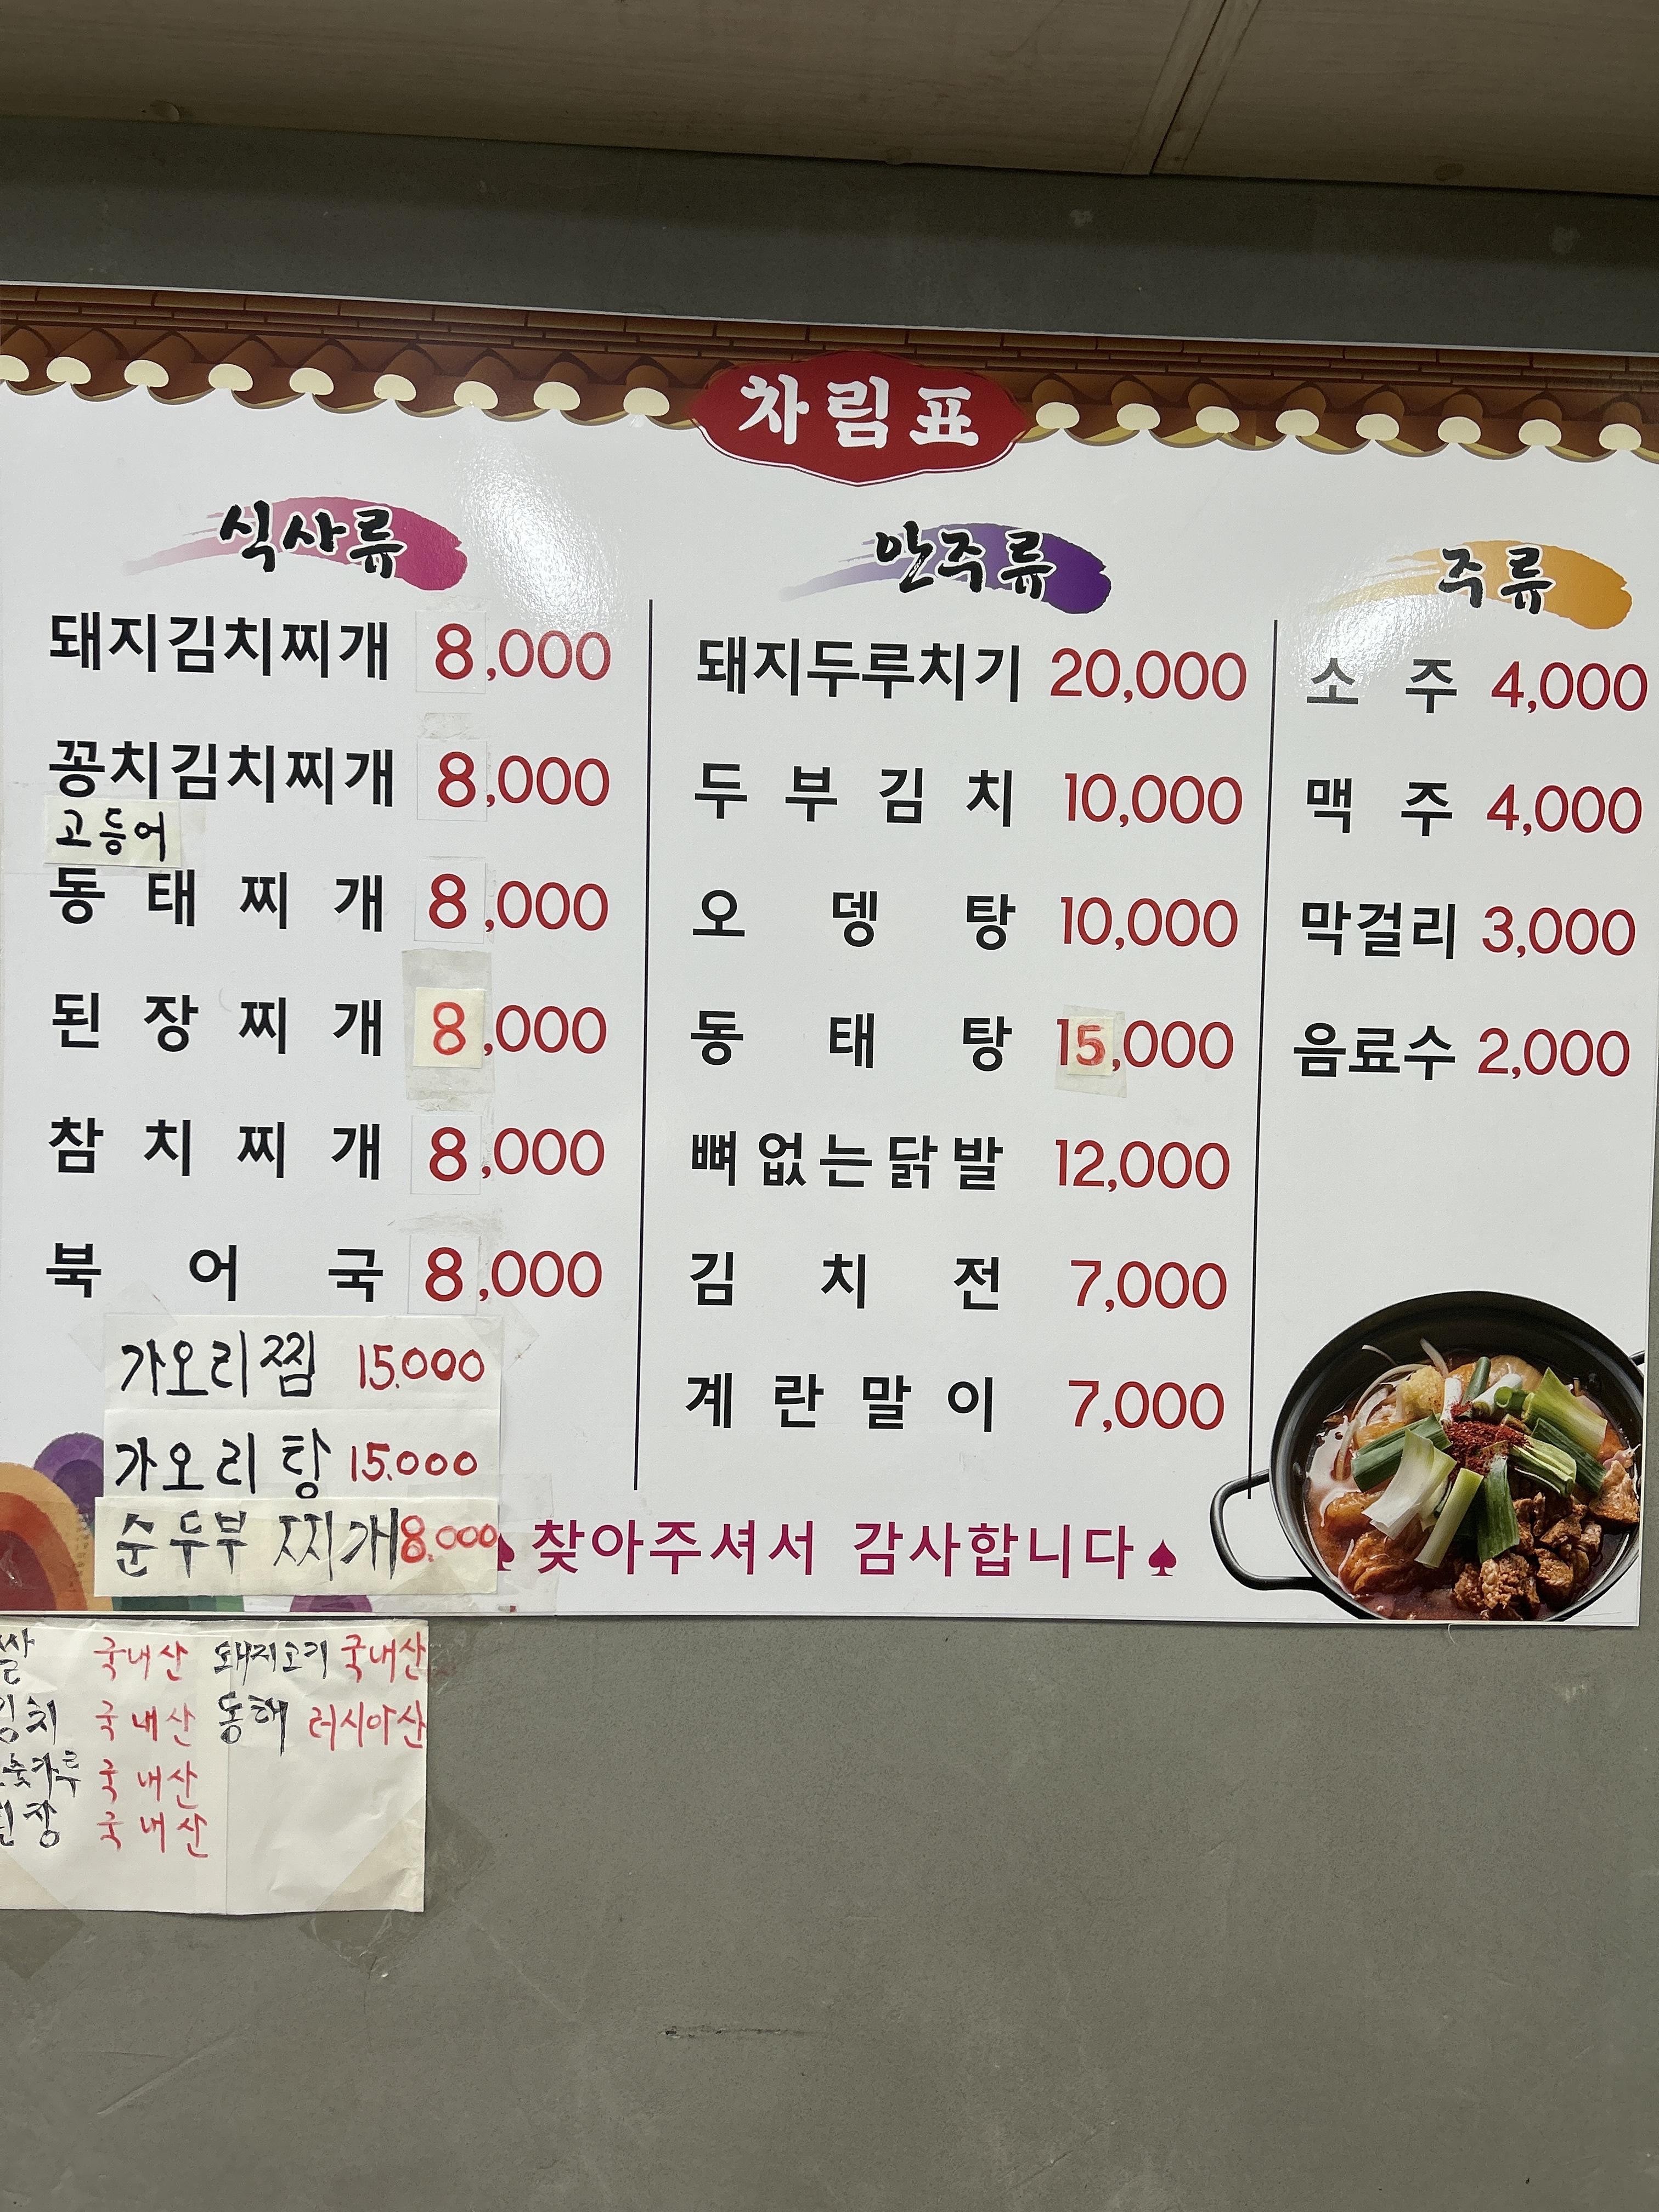 차림표
식사류
돼지김치찌개 8,000
꽁치김치찌개 8,000
고등어
동태찌개 8,000
된장찌개 8,000
참치찌개 8,000
북어국 8,000
가오리찜 15.000
가오리탕 15.000
순두부 찌개 8.000
안주류
돼지두루치기 20,000
두부김치 10,000
오뎅탕 10,000
동태탕 15,000
뼈없는닭발 12,000
김치전 7,000
계란말이 7,000
주류
소주 4,000
맥주 4,000
막걸리 3,000
음료수 2,000
♠찾아주셔서 감사합니다♠
쌀 국내산 돼지고기 국내산
김치 국내산 동해 러시아산
국내산
국내산